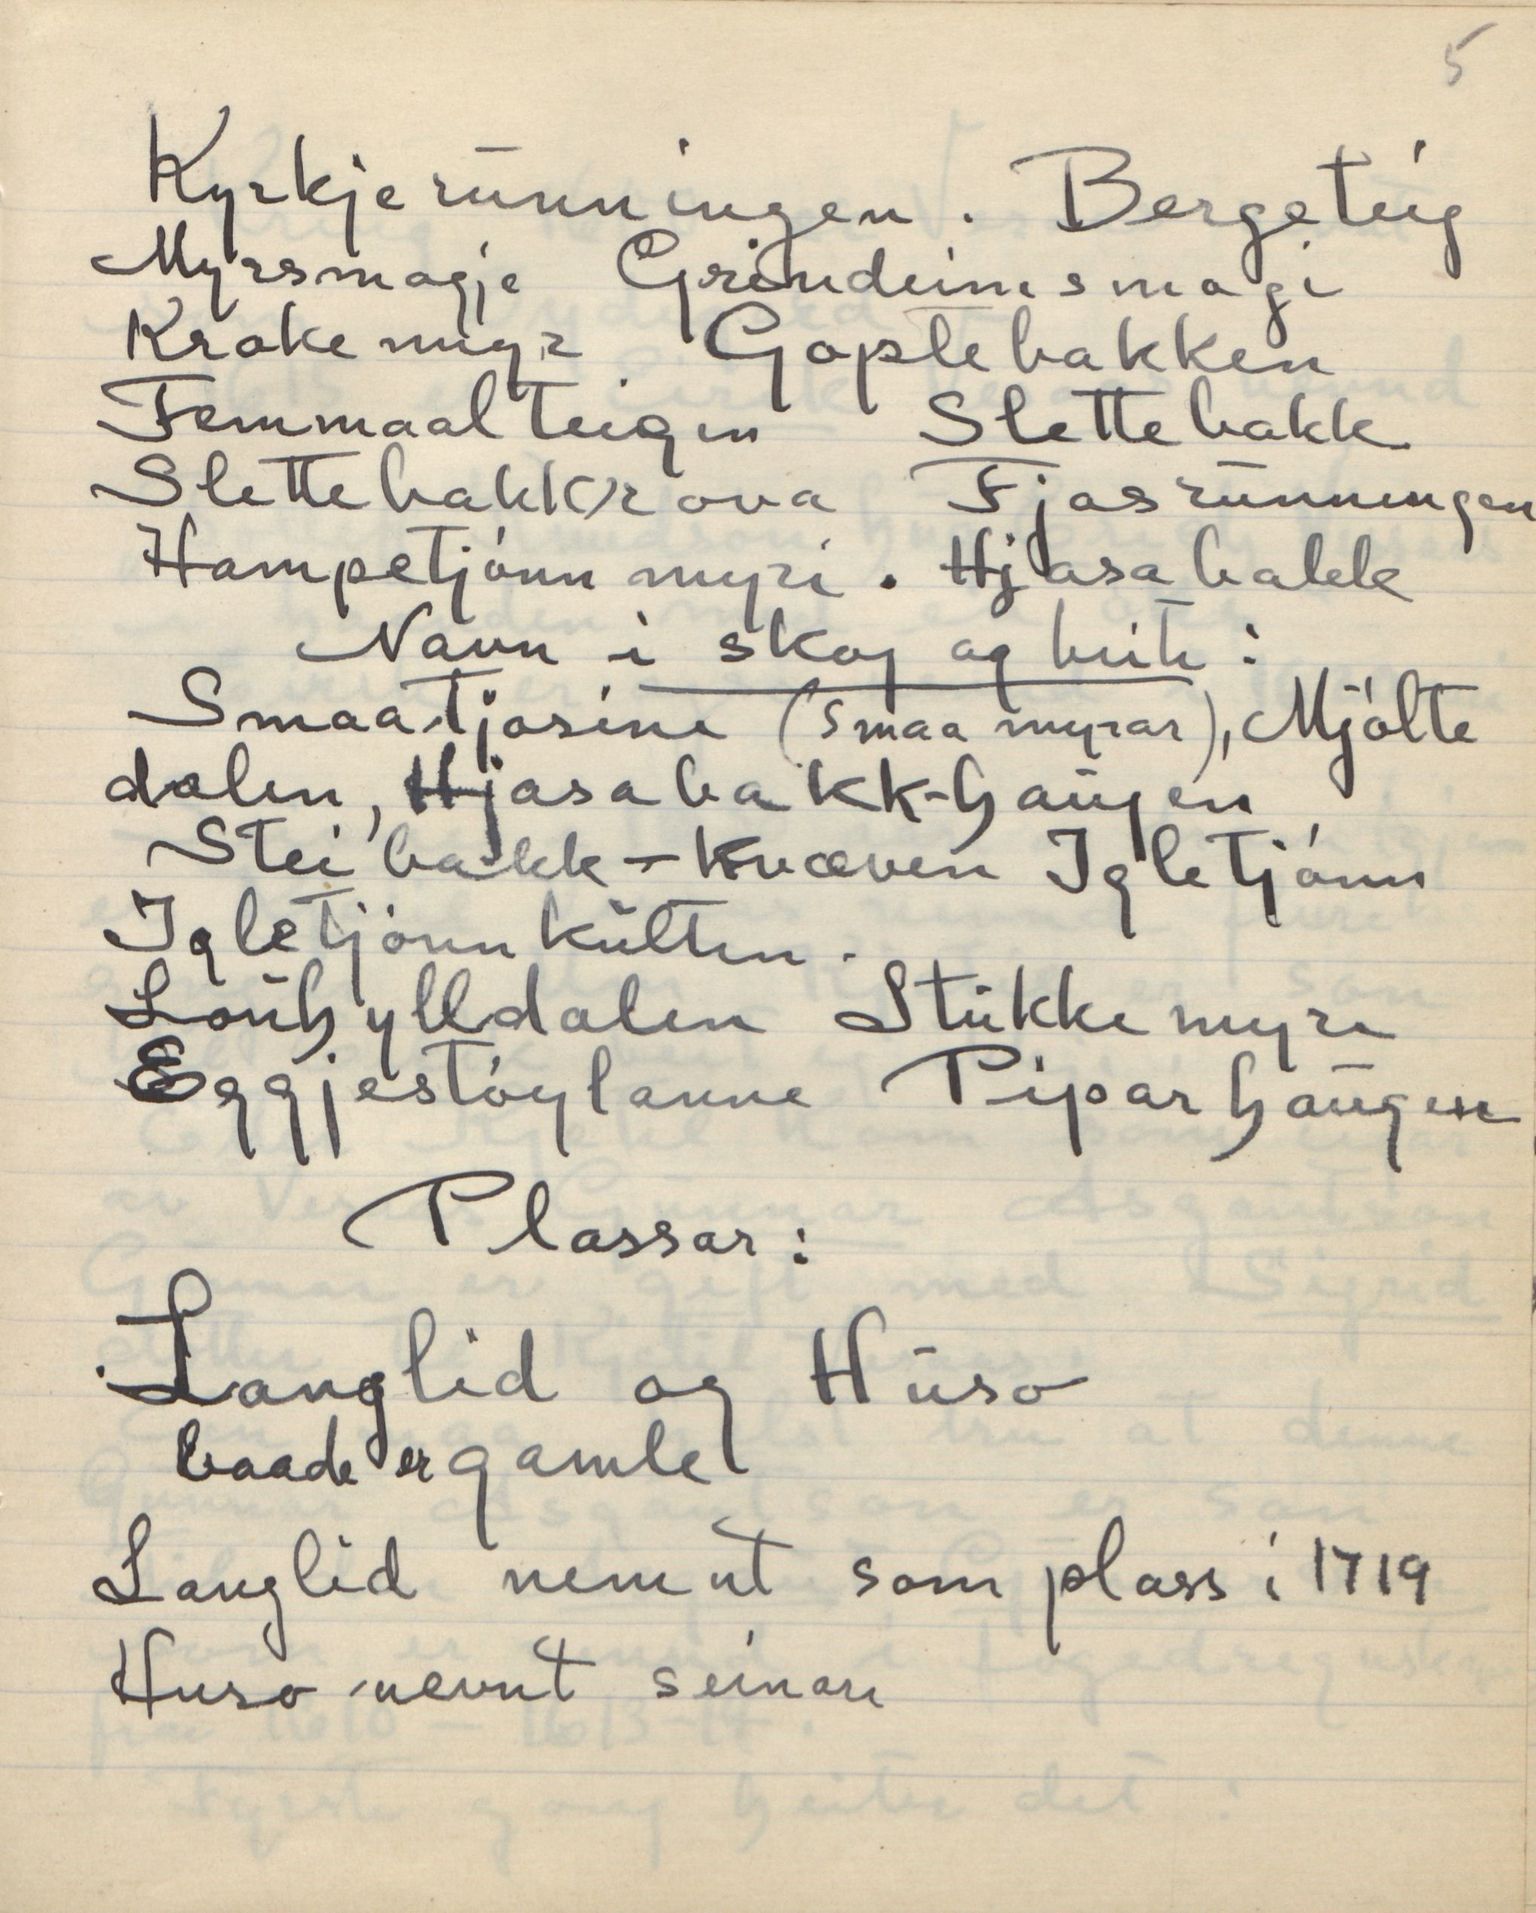 5
Kyrkjerunningen. Bergeteig
Myrsmogje Grindeimsmogi
Krokemyr Goptebakken
Femmaalteigen Slettebakk
Slettebakkrova Fjosrunningen
Hampetjónnmyri. Hjasabakk
Navn i skog og beite:
Smaatjosine (Smaamyrar), Mjólte
dalen, Hjasabakk-haugen
Steibakk-Kvæven Igletjónn
Igletjónnkulten.
Lauhylldalen Stukkemyre
Eggjestóylanne Piparhaugen
Plassar:
Langlid og Huso
baade er gamle
Langlid nemnt som plass i 1719
Huso nevnt seinare